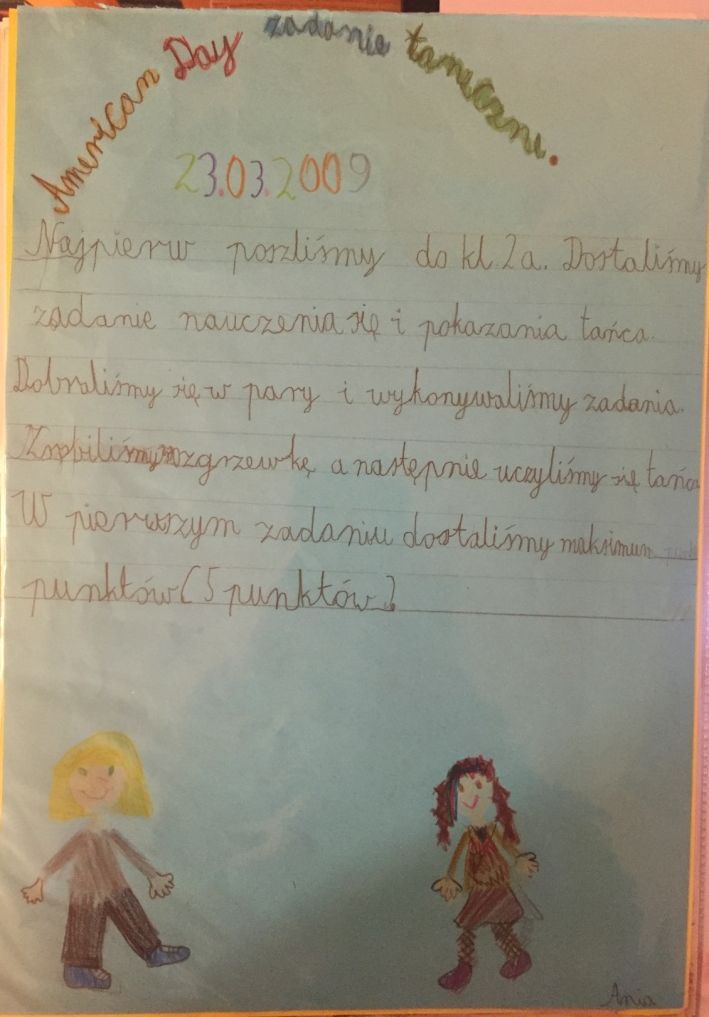 American Day zadanie taneczne.
23.03.2009
Najpierw poszliśmy do kl. 2a. Dostaliśmy
zadanie nauczenia się i pokazania tańca.
Dobraliśmy się w pary i wykonywaliśmy zadania.
Zrobiliśmy rozgrzewkę a następnie uczyliśmy się tańca
W pierwszym zadaniu dostaliśmy maksimum
punktów (5 punktów)
Ania